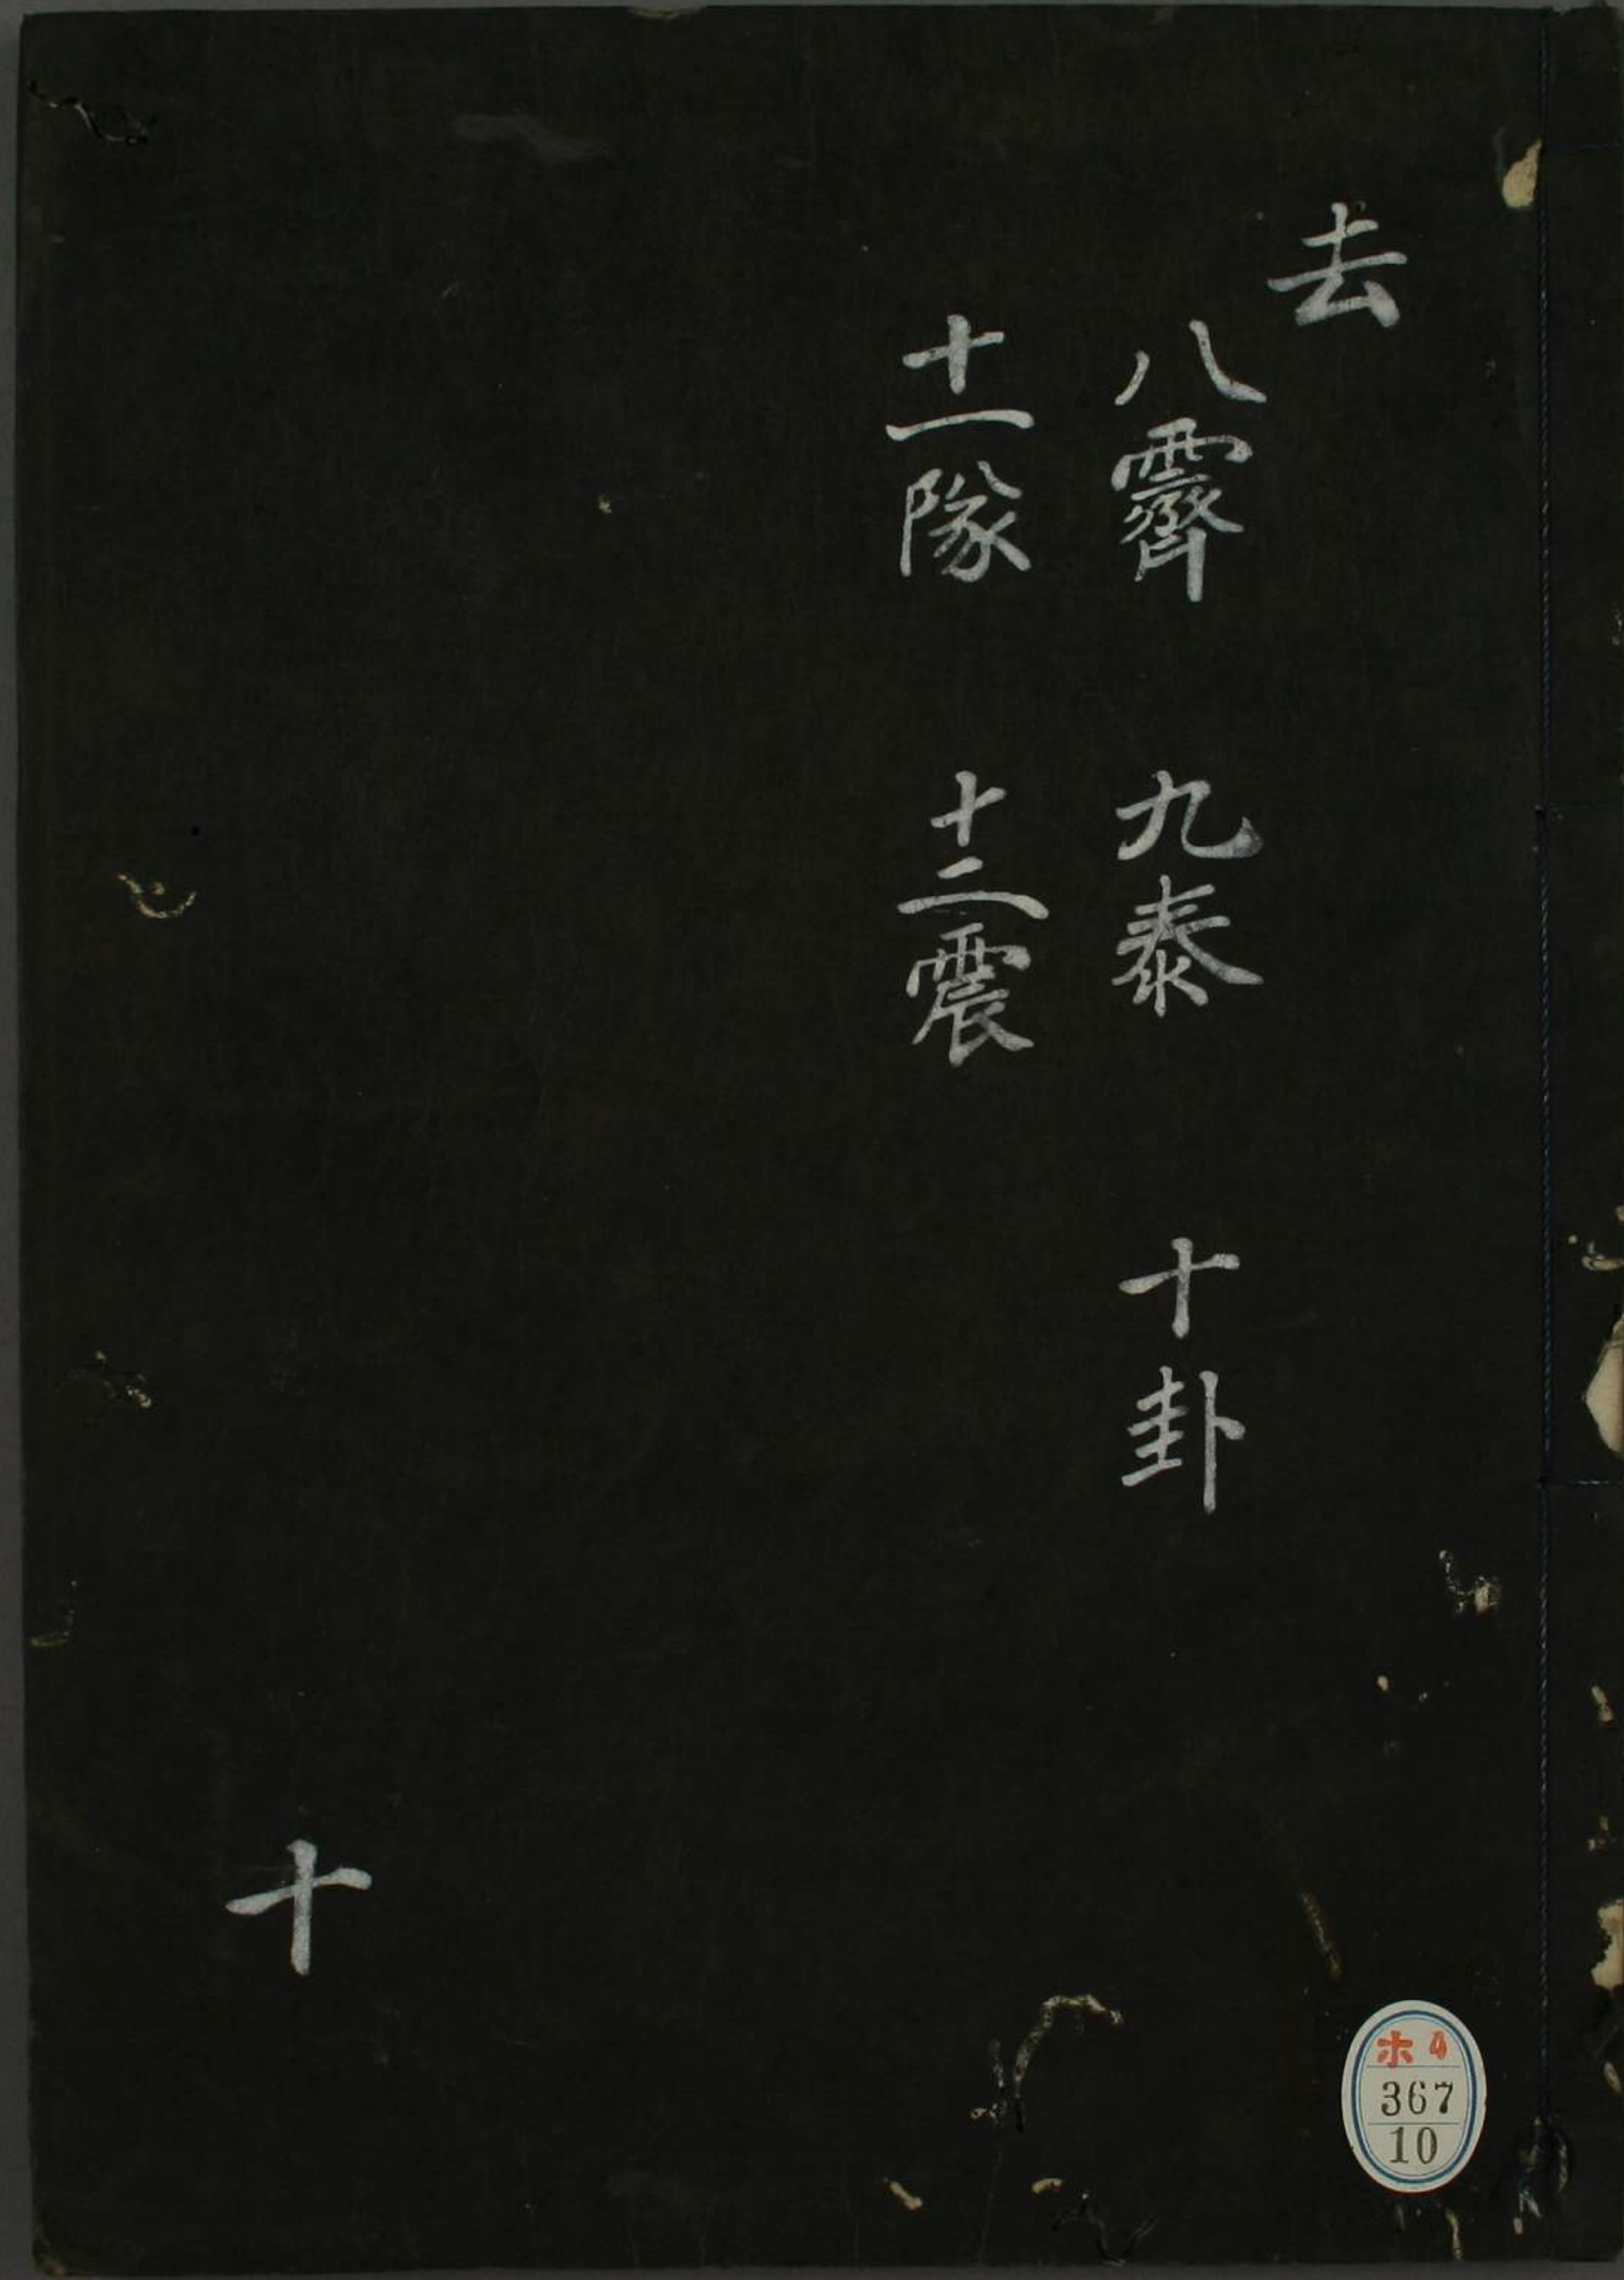 去
八霽 九泰 十卦
十一隊 十二震
十
ホ4
367
10